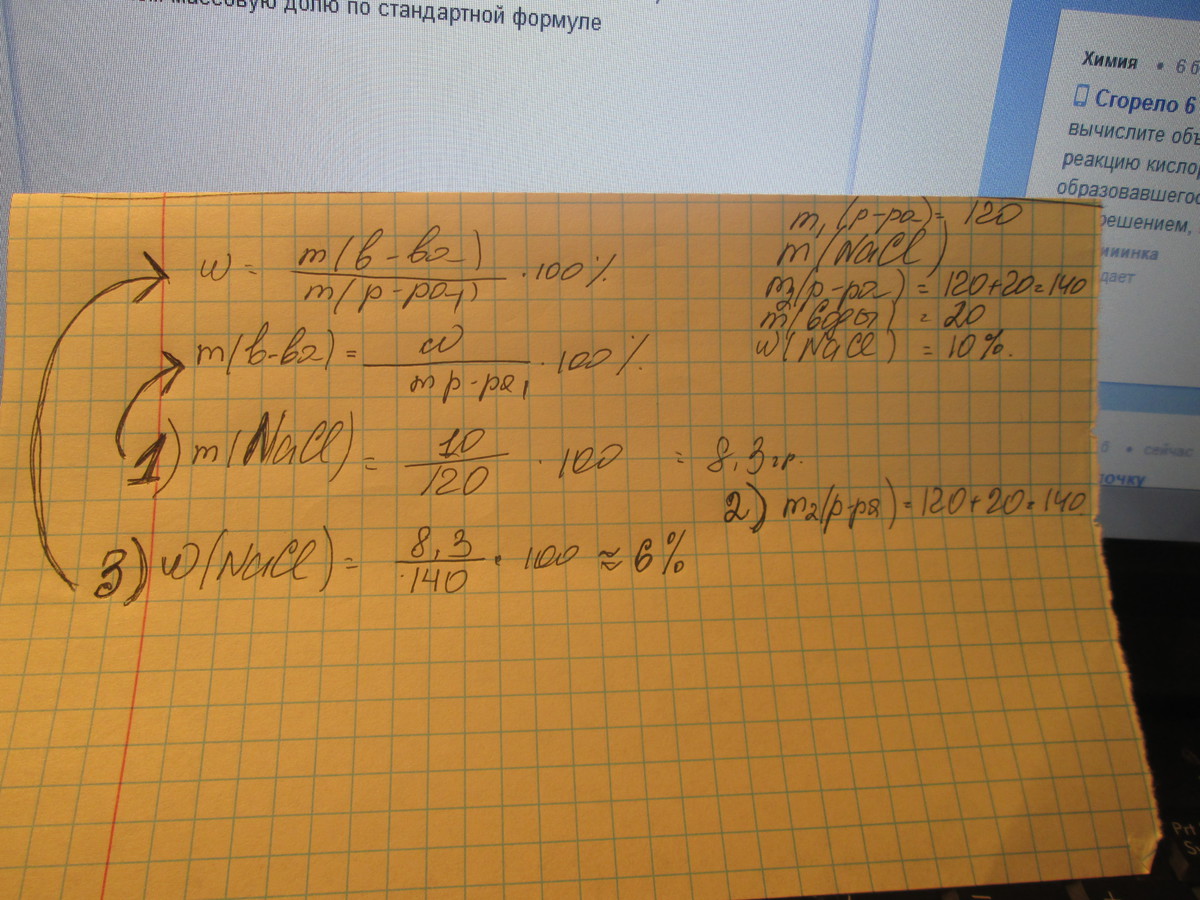 массовую долю по стандартной формуле
Химия • 6 б
Сгорело 6
вычислите объ
реакцию кислор
образовавшегос
решением,
дает
• сейчас
m₁(р-ра) = 120
m(NaCl)
m₂(р-ра) = 120+20=140
m(воды) = 20
w(NaCl) = 10%.
w = m(в-ва) / m(р-ра₁) · 100%
m(в-ва) = w / m р-ра₁ · 100%
1) m(NaCl) = 10 / 120 · 100 = 8,3 гр.
2) m₂(р-ра) = 120+20=140
3) w(NaCl) = 8,3 / 140 · 100 ≈ 6%